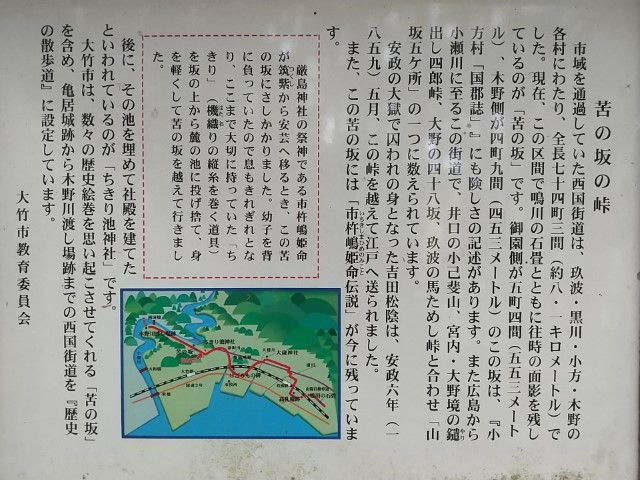 苦の坂の峠
市域を通過していた西国街道は、玖波・黒川・小方・木野の
各村にわたり、全長七十四町三間（約八・一キロメートル）で
した。現在、この区間で鳴川の石畳とともに往時の面影を残し
ているのが「苦の坂」です。御園側が五町四間（五五三メート
ル）、木野側が四町九間（四五三メートル）のこの坂は、『小
方村「国郡誌」』にも険しさの記述があります。また広島から
小瀬川に至るこの街道で、井口の小己斐山、宮内・大野境の鑓
出し四郎峠、大野の四十八坂、玖波の馬ためし峠と合わせ「山
坂五ケ所」の一つに数えられています。
安政の大獄で囚われの身となった吉田松陰は、安政六年（一
八五九）五月、この峠を越えて江戸へ送られました。
また、この苦の坂には「市杵嶋姫命伝説」が今に残っていま
す。
厳島神社の祭神である市杵嶋姫命
が筑紫から安芸へ移るとき、この苦
の坂にさしかかりました。幼子を背
に負っていたので息もきれぎれとな
り、ここまで大切に持っていた「ち
きり」（機織りの縦糸を巻く道具）
を坂の上から麓の池に投げ捨て、身
を軽くして苦の坂を越えて行きまし
た。
後に、その池を埋めて社殿を建てた
といわれているのが「ちきり池神社」です。
大竹市は、数々の歴史絵巻を思い起こさせてくれる「苦の坂」
を含め、亀居城跡から木野川渡し場跡までの西国街道を『歴史
の散歩道』に設定しています。
大竹市教育委員会